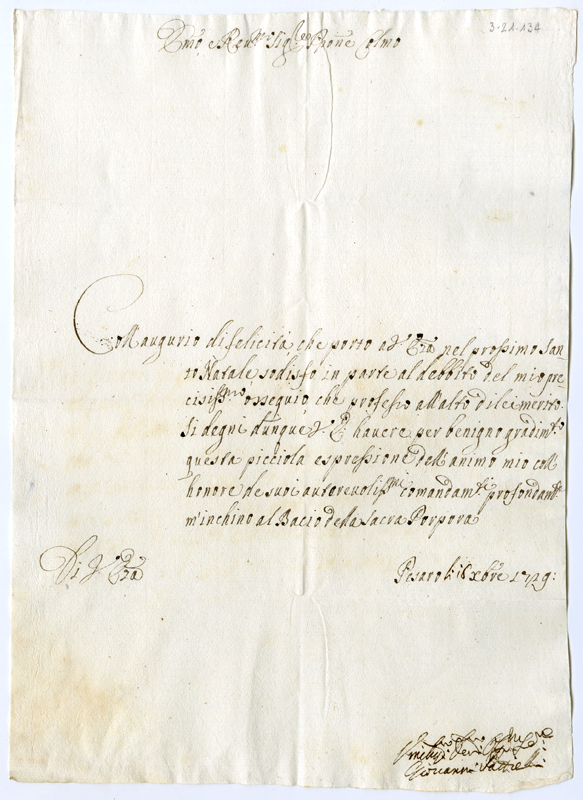 3-21-134
Em̃o e Reu.mo Sig.re Prõne Col.mo
Coll augurio di felicità, che porto ad V. Em̃a nel prossimo San
to Natale sodisfo in parte al debbito del mio pre
cisiss.mo ossequio che professo all'alto di lei merito.
Si degni dunque V. E. havere per benigno gradim.to
questa picciola espressione dell'animo mio coll
honore de suoi autorevoliss.mi comandam.ti profondam.te
m'inchino al Bacio della Sacra Porpora
Di V. Em̃a
Pesaro li 18 Xbre 1719:
Giovanni